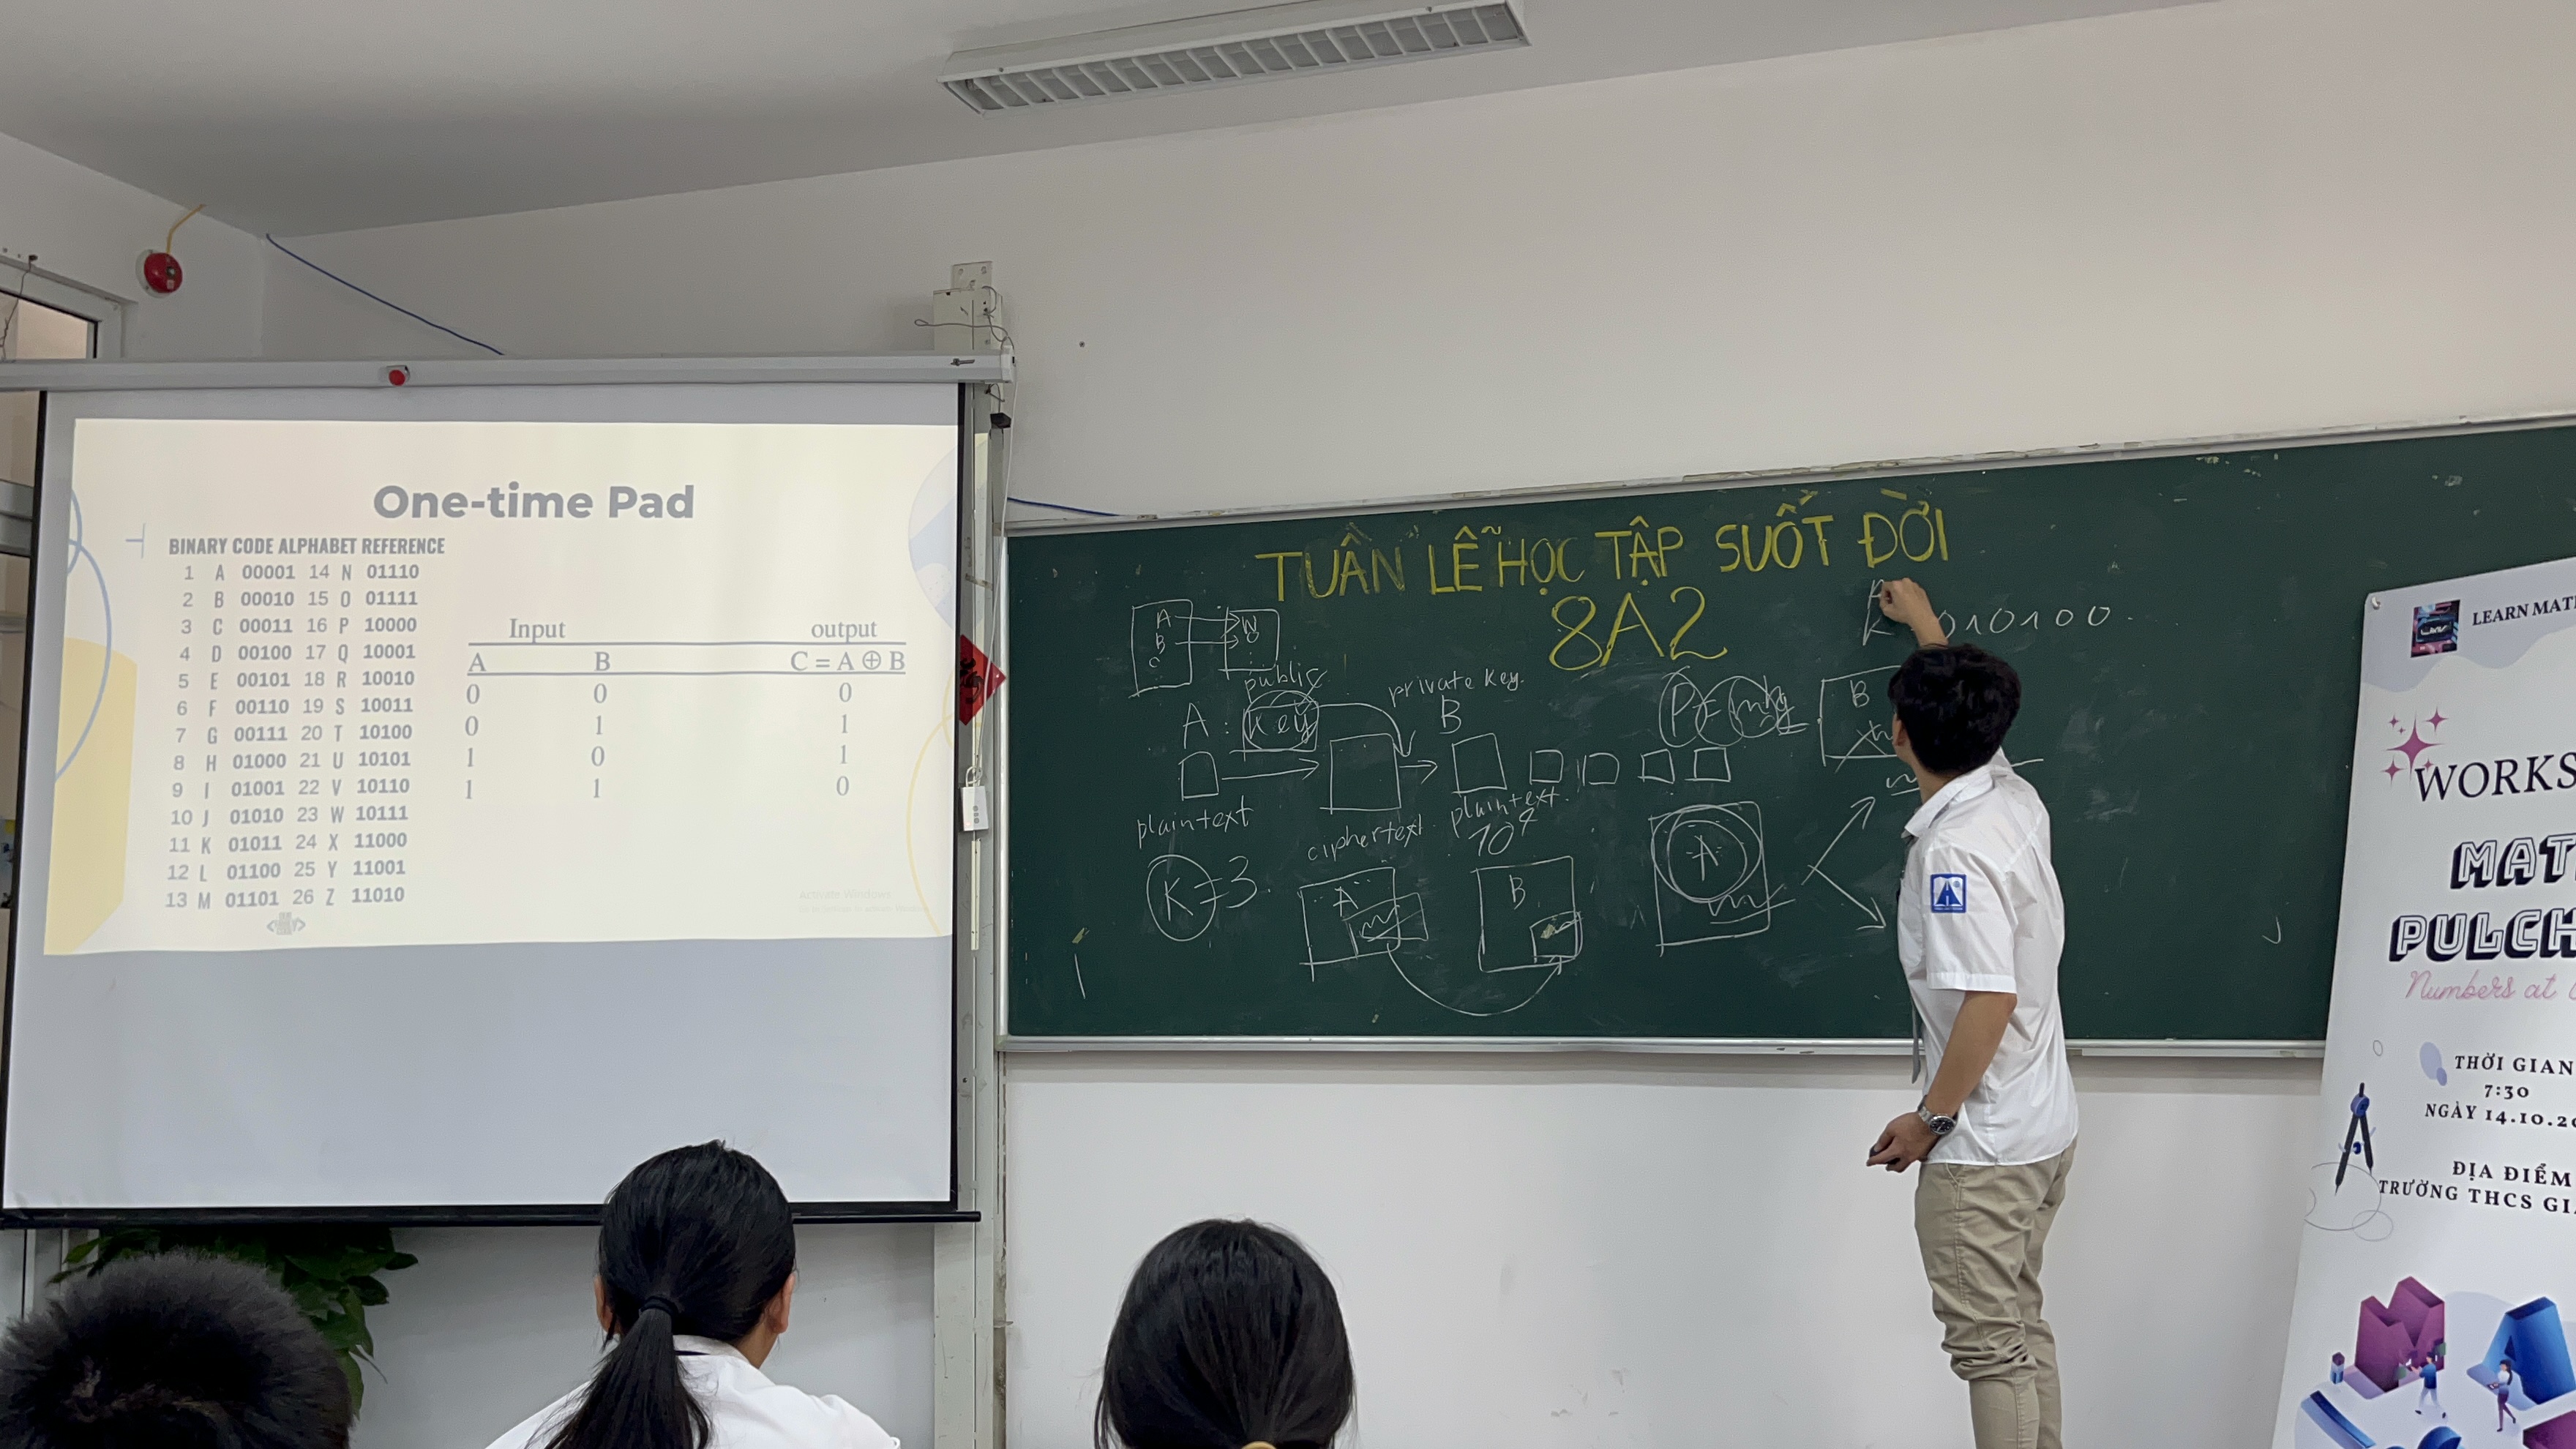 One-time Pad
BINARY CODE ALPHABET REFERENCE
1 A 00001 14 N 01110
2 B 00010 15 O 01111
3 C 00011 16 P 10000
4 D 00100 17 Q 10001
5 E 00101 18 R 10010
6 F 00110 19 S 10011
7 G 00111 20 T 10100
8 H 01000 21 U 10101
9 I 01001 22 V 10110
10 J 01010 23 W 10111
11 K 01011 24 X 11000
12 L 01100 25 Y 11001
13 M 01101 26 Z 11010
Input output
A B C = A ⊕ B
0 0 0
0 1 1
1 0 1
1 1 0
Activate Windows
TUẦN LỄ HỌC TẬP SUỐT ĐỜI
8A2
A
B
C
public
private key.
A: key
B
plaintext
ciphertext
plaintext.
K = 3
A
B
A
B
010100
LEARN MAT
WORKS
MAT
PULCH
Numbers at
THỜI GIAN
7:30
NGÀY 14.10.2
ĐỊA ĐIỂM
TRƯỜNG THCS GI